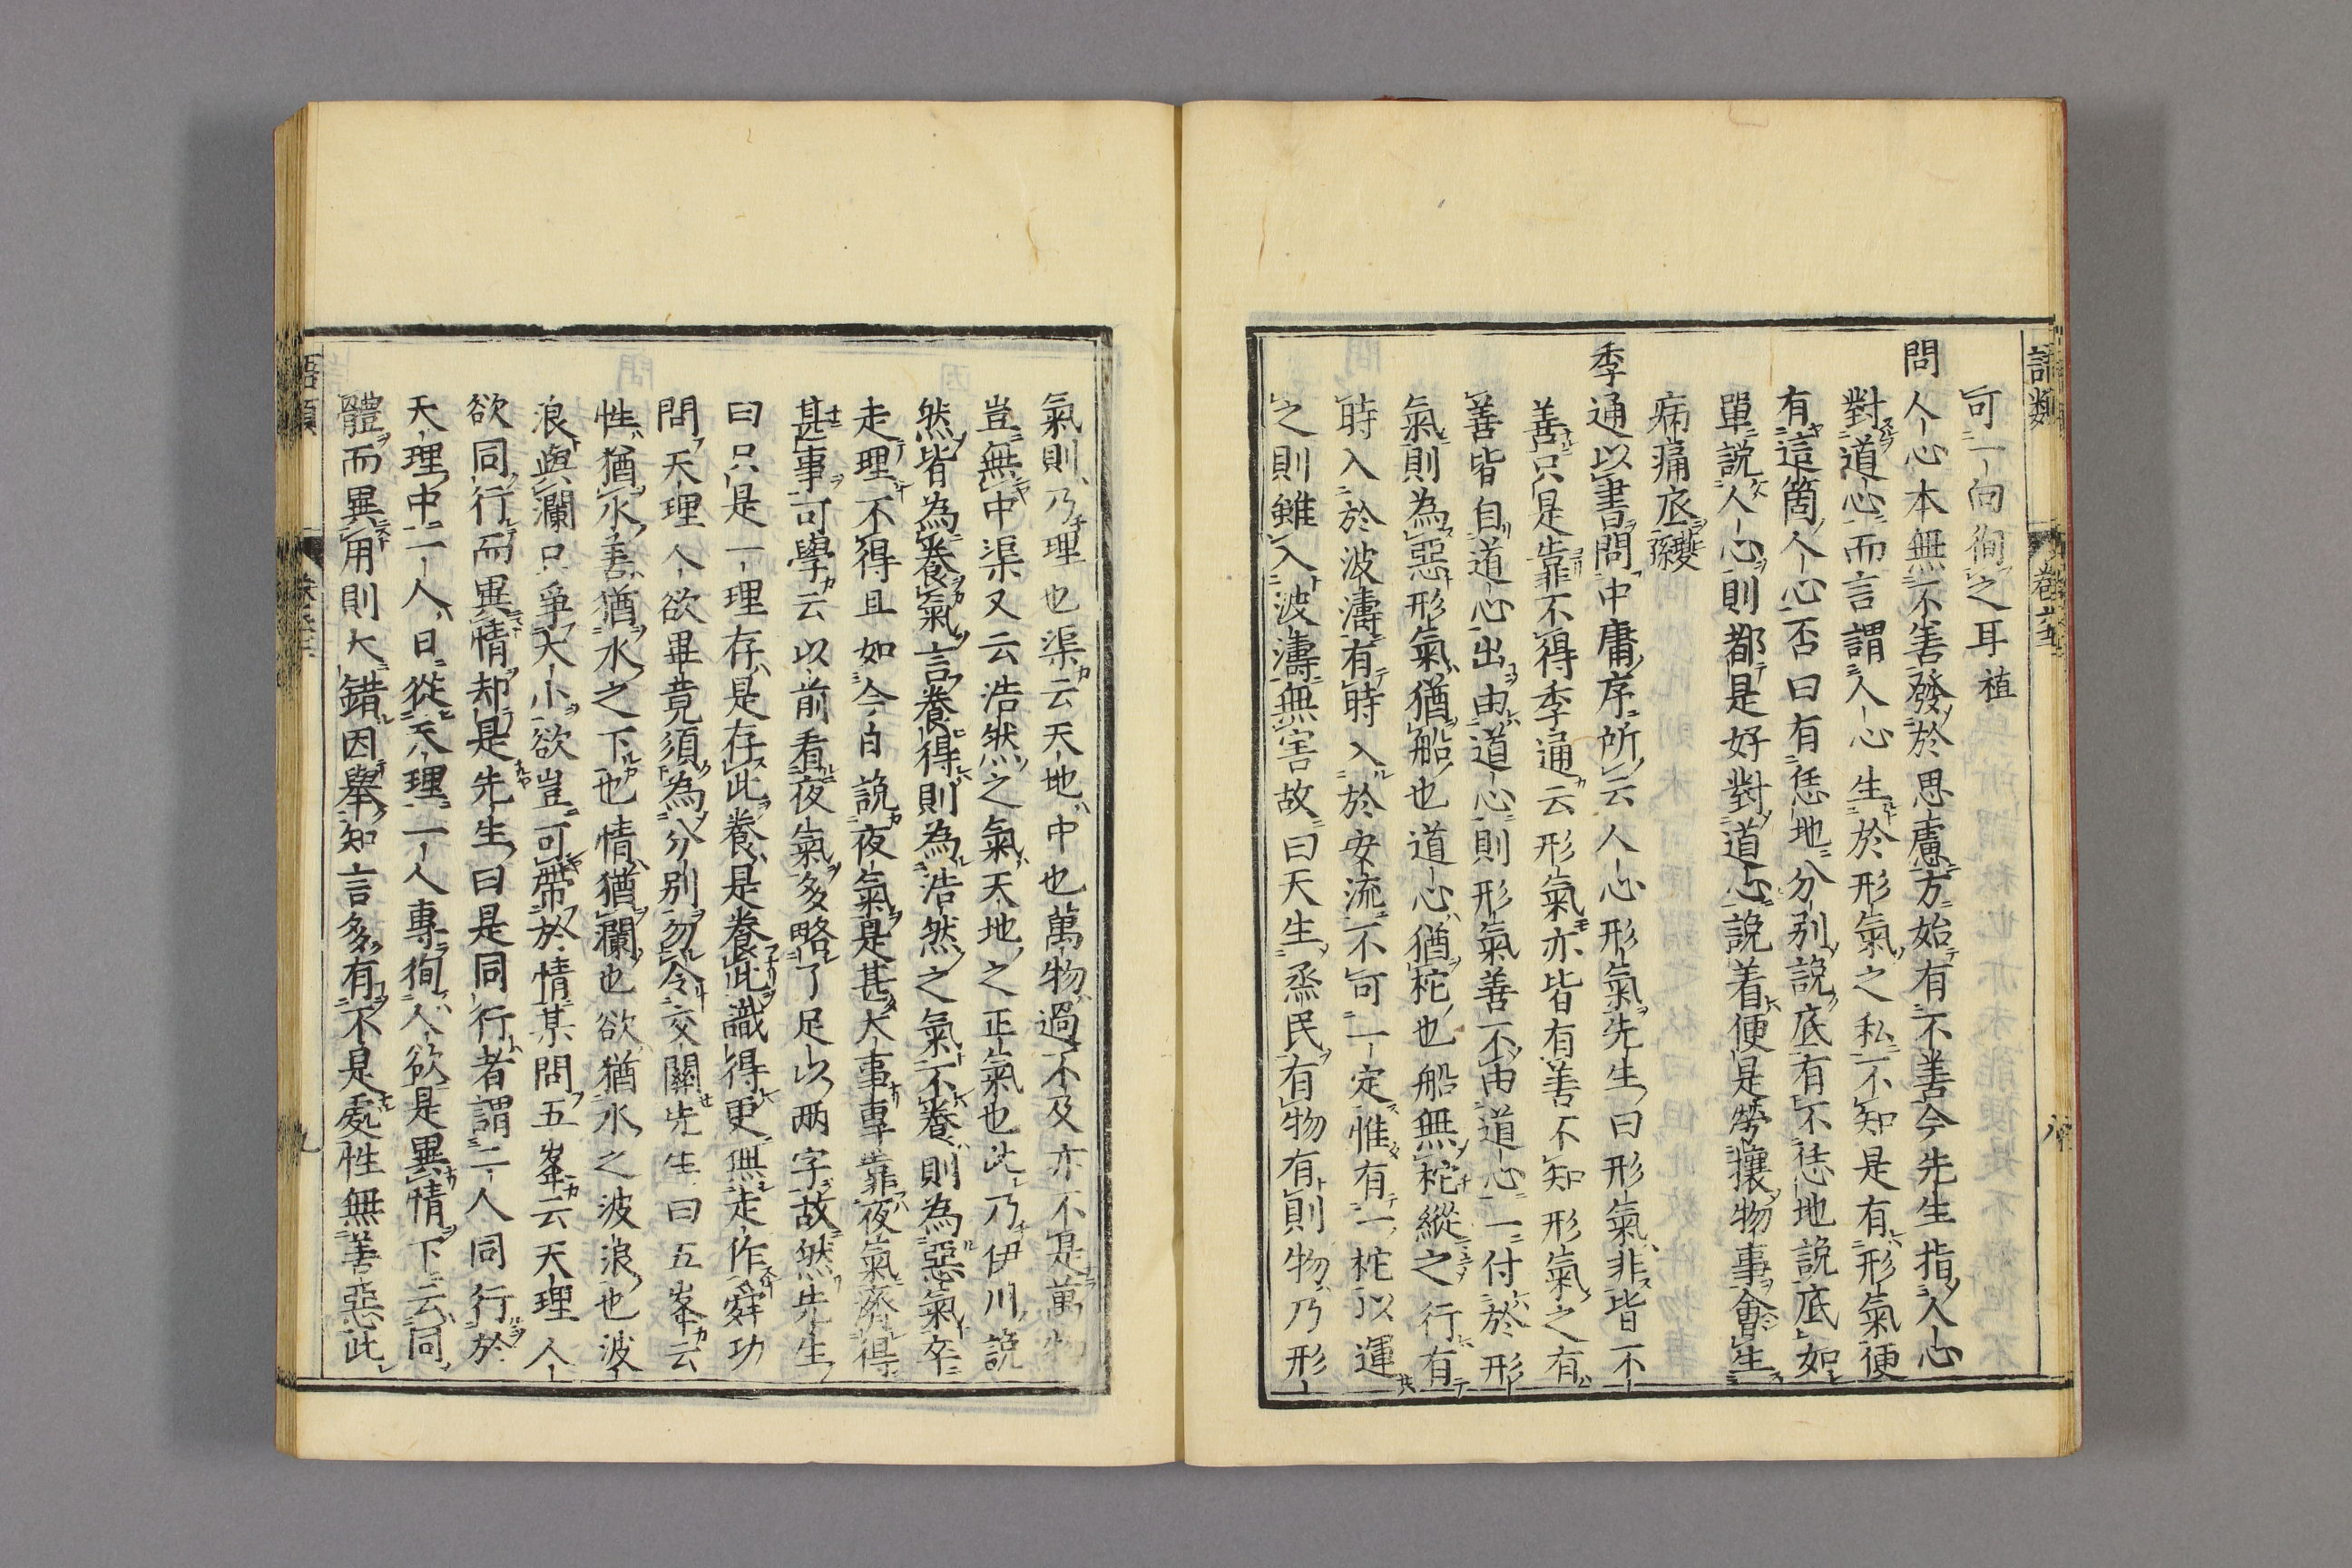 語類
卷六十二
八
可一向徇之耳植
問人心本無不善發於思慮方始有不善今先生指人心
對道心而言謂人心生於形氣之私不知是有形氣便
有這箇人心否曰有恁地分別說底有不恁地說底如
單說人心則都是好對道心說着便是勞攘物事會生
病痛底夔孫
季通以書問中庸序所云人心形氣先生曰形氣非皆不
善只是靠不得季通云形氣亦皆有善不知形氣之有
善皆自道心出由道心則形氣善不由道心一付於形
氣則為惡形氣猶船也道心猶柁也船無柁縱之行有
時入於波濤有時入於安流不可一定惟有一柁以運
之則雖入波濤無害故曰天生烝民有物有則物乃形
氣則乃理也渠云天地中也萬物過不及亦不是萬物
豈無中渠又云浩然之氣天地之正氣也此乃伊川說
然皆為養氣言養得則為浩然之氣不養則為惡氣卒
走理不得且如今日說夜氣是甚大事專靠夜氣濟得
甚事可學云以前看夜氣多略了足以两字故然先生
曰只是一理存是存此養是養此識得更無走作舜功
問天理人欲畢竟須為分別勿令交關先生曰五峯云
性猶水善猶水之下也情猶瀾也欲猶水之波浪也波
浪與瀾只爭大小欲豈可帶於情某問五峯云天理人
欲同行而異情却是先生曰是同行者謂二人同行於
天理中一人日從天理一人專徇人欲是異情下云同
體而異用則大錯因舉知言多有不是處性無善惡此
語類
九